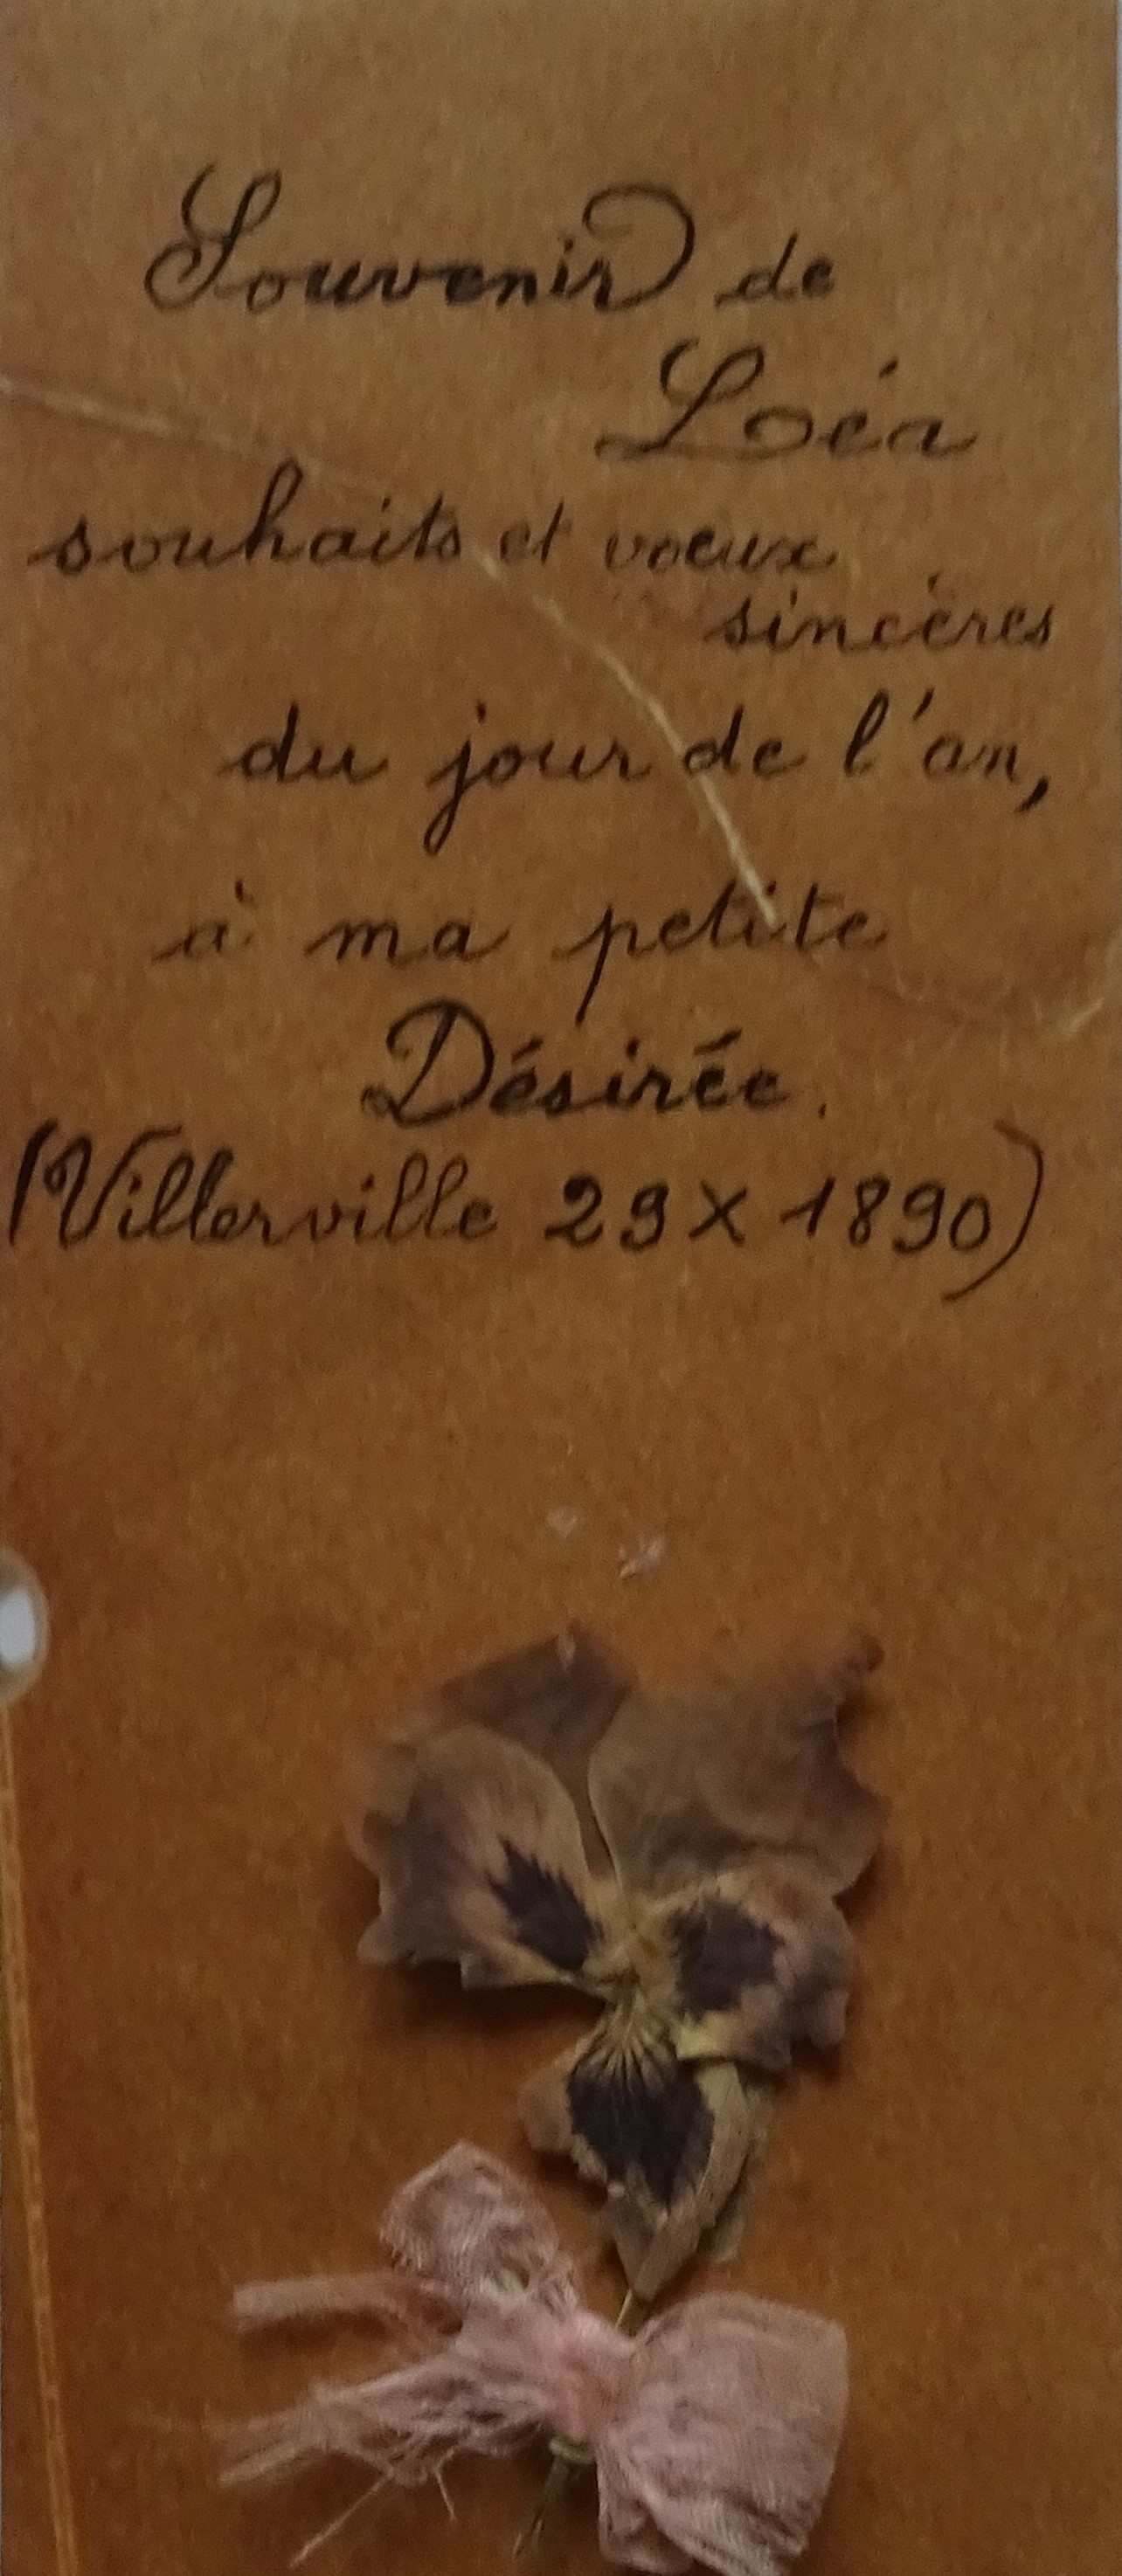 Souvenir de
Léa
souhaits et voeux
sincères
du jour de l'an,
à ma petite
Désirée.
(Villerville 29 X 1890)